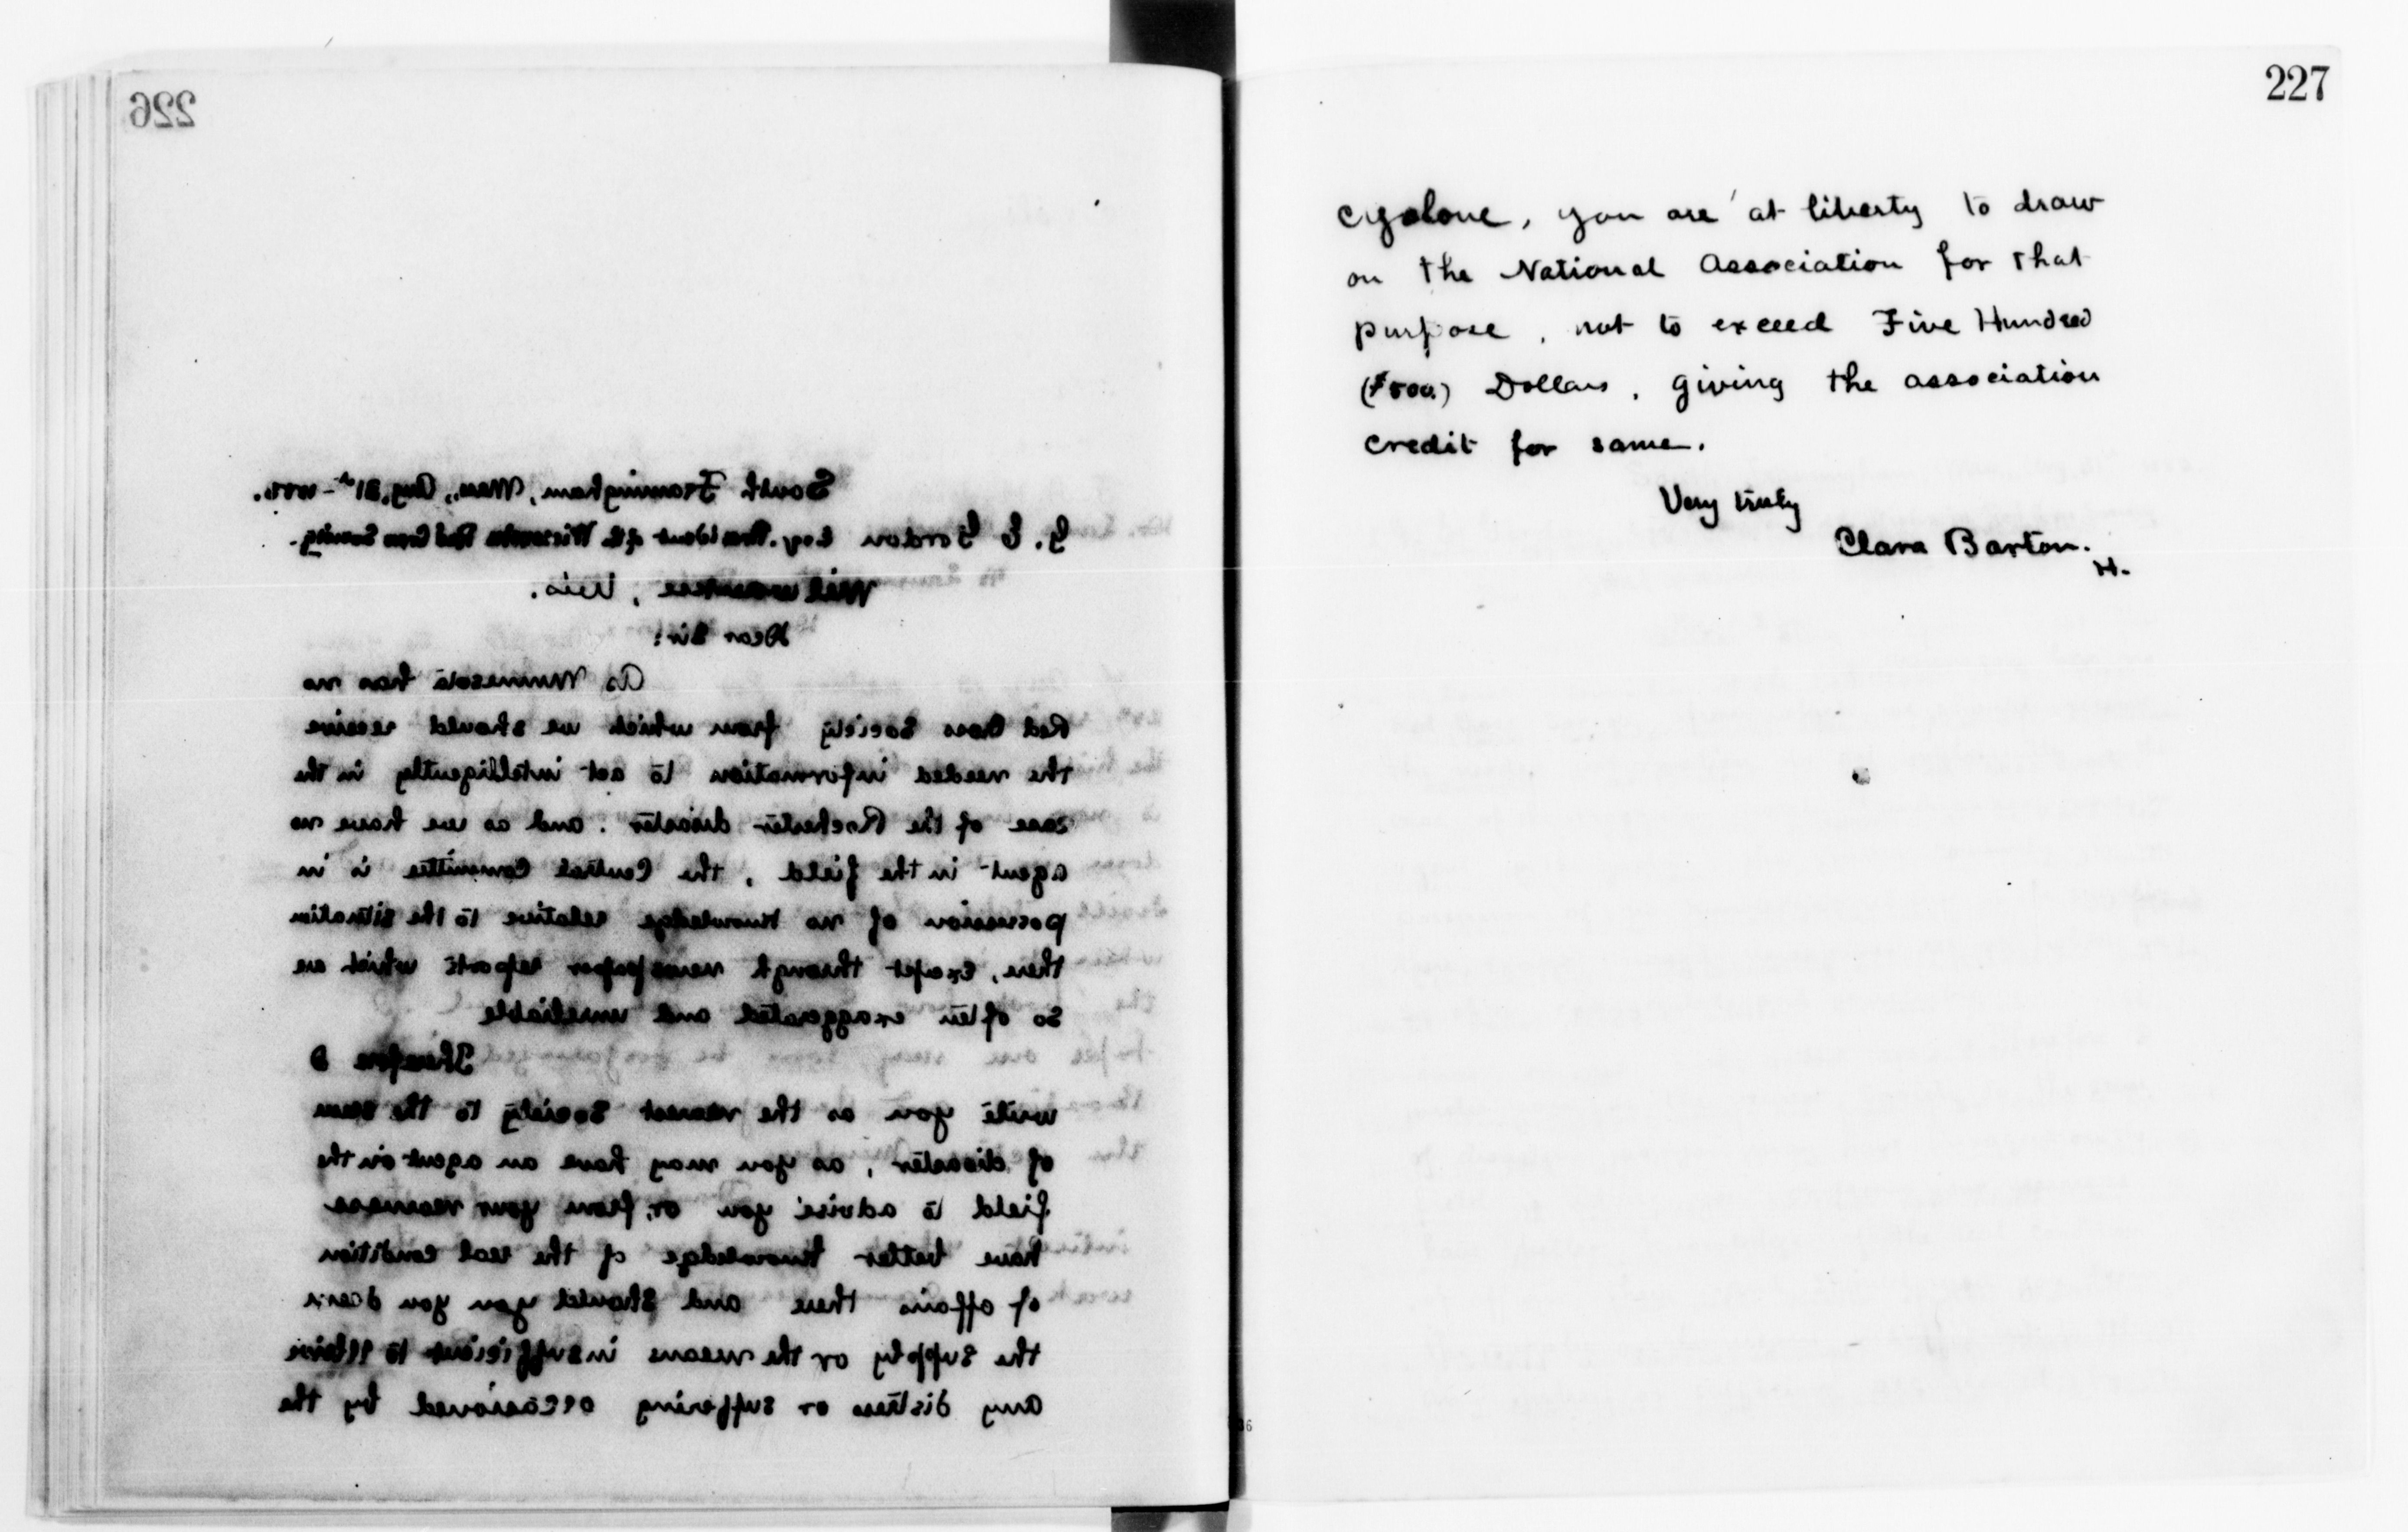 226
South Framingham, Mass., Aug. 31st
G. E. Gordon Esq. President of the Wisconsin Red Cross Society.
Milwaukee, Wis.
Dear Sir:
As Minnesota has no
Red Cross Society from which we should receive
the needed information to act intelligently in the
case of the Rochester disaster. and as we have no
agent in the field, the Central Committee is in
possession of no knowledge relative to the situation
there, except through newspaper reports which are
so often exaggerated and unreliable
Therefore I
write you as the nearest Society to the scene
of disaster, as you may have an agent in the
field to advise you or, from your nearness
have better knowledge of the real condition
of affairs there and should you you deem
the supply or the means insufficient to relieve
any distress or suffering occasioned by the
227
cyclone, you are at liberty to draw
on the National Association for that
purpose, not to exceed Five Hundred
($500.) Dollars, giving the association
credit for same.
Very truly
Clara Barton.
H.
36